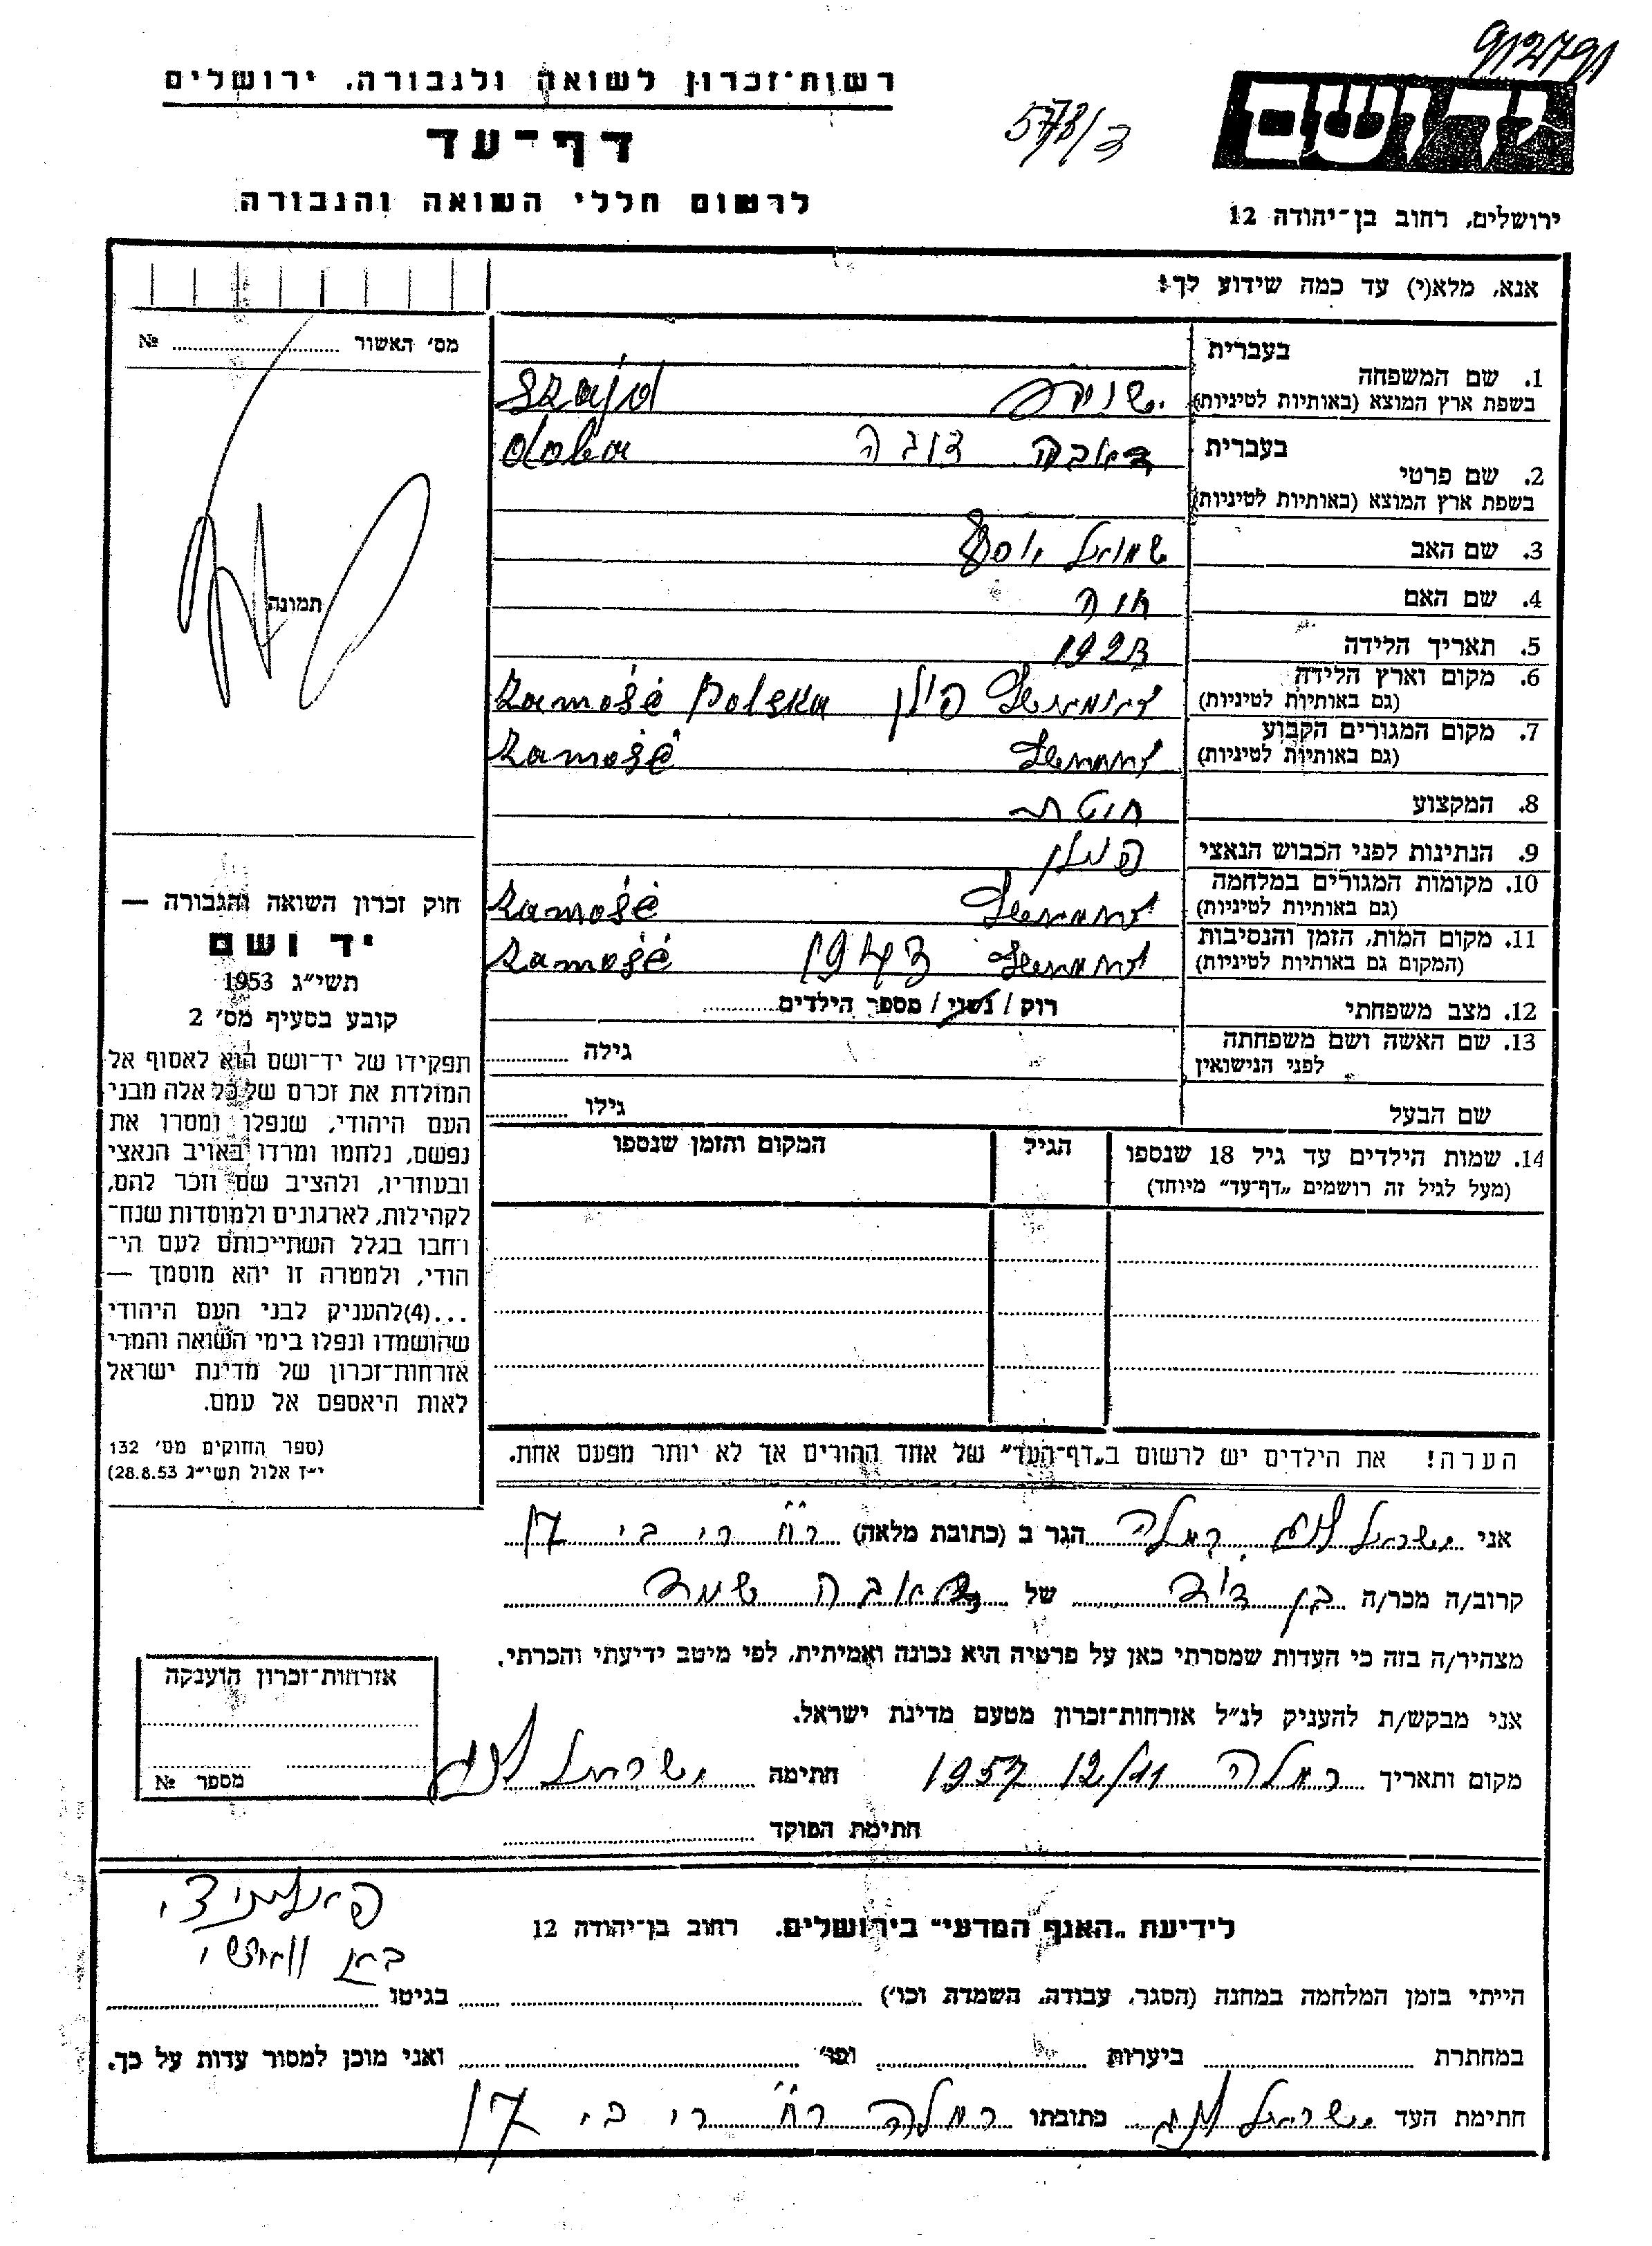 912791
רשות־זכרון לשואה ולגבורה. ירושלים
דף־עד
לרשום חללי השואה והגבורה
578/3
יד ושם
ירושלים, רחוב בן־יהודה 12
אנא, מלא(י) עד כמה שידוע לך:
מס׳ האשור № ........
תמונה
בעברית
1. שם המשפחה
בשפת ארץ המוצא (באותיות לטיניות)
szajd
בעברית
2. שם פרטי
בשפת ארץ המוצא (באותיות לטיניות)
דאבה דובה doba
3. שם האב שמואל יוסף
4. שם האם חוה
5. תאריך הלידה 1923
6. מקום וארץ הלידה
(גם באותיות לטיניות)
פולן zamość Polska
7. מקום המגורים הקבוע
(גם באותיות לטיניות)
zamość
8. המקצוע
9. הנתינות לפני הכבוש הנאצי פולן
10. מקומות המגורים במלחמה
(גם באותיות לטיניות)
zamość
11. מקום המות, הזמן והנסיבות
(המקום גם באותיות לטיניות)
1943 zamość
12. מצב משפחתי רוק / נשוי / מספר הילדים........
13. שם האשה ושם משפחתה
לפני הנישואין
גילה ........
שם הבעל גילו ........
14. שמות הילדים עד גיל 18 שנספו
(מעל לגיל זה רושמים „דף־עד” מיוחד)
הגיל
המקום והזמן שנספו
הערה! את הילדים יש לרשום ב„דף־העד” של אחד ההורים אך לא יותר מפעם אחת.
חוק זכרון השואה והגבורה —
יד ושם
תשי״ג 1953
קובע בסעיף מס׳ 2
תפקידו של יד־ושם הוא לאסוף אל
המולדת את זכרם של כל אלה מבני
העם היהודי, שנפלו ומסרו את
נפשם, נלחמו ומרדו באויב הנאצי
ובעוזריו, ולהציב שם וזכר להם,
לקהילות, לארגונים ולמוסדות שנח־
רחבו בגלל השתייכותם לעם הי־
הודי, ולמטרה זו יהא מוסמך —
...(4)להעניק לבני העם היהודי
שהושמדו ונפלו בימי השואה והמרי
אזרחות־זכרון של מדינת ישראל
לאות היאספם אל עמם.
(ספר החוקים מס׳ 132
י״ז אלול תשי״ג 28.8.53)
אני ישראל רמלה הגר ב (כתובת מלאה) 17
קרוב/ה מכר/ה בן דוד של דאבה
מצהיר/ה בזה כי העדות שמסרתי כאן על פרטיה היא נכונה ואמיתית, לפי מיטב ידיעתי והכרתי.
אני מבקש/ת להעניק לנ״ל אזרחות־זכרון מטעם מדינת ישראל.
מקום ותאריך רמלה 12/11 1957 חתימה ישראל
חתימת הפוקד ........
אזרחות־זכרון הוענקה
מספר №
לידיעת „האגף המדעי” בירושלים. רחוב בן־יהודה 12
הייתי בזמן המלחמה במחנה (הסגר, עבודה, השמדה וכו׳) ........ בגיטו ........
במחתרת ........ ביערות ........ ופר׳ ........ ואני מוכן למסור עדות על כך.
חתימת העד ישראל כתובתו רמלה 17